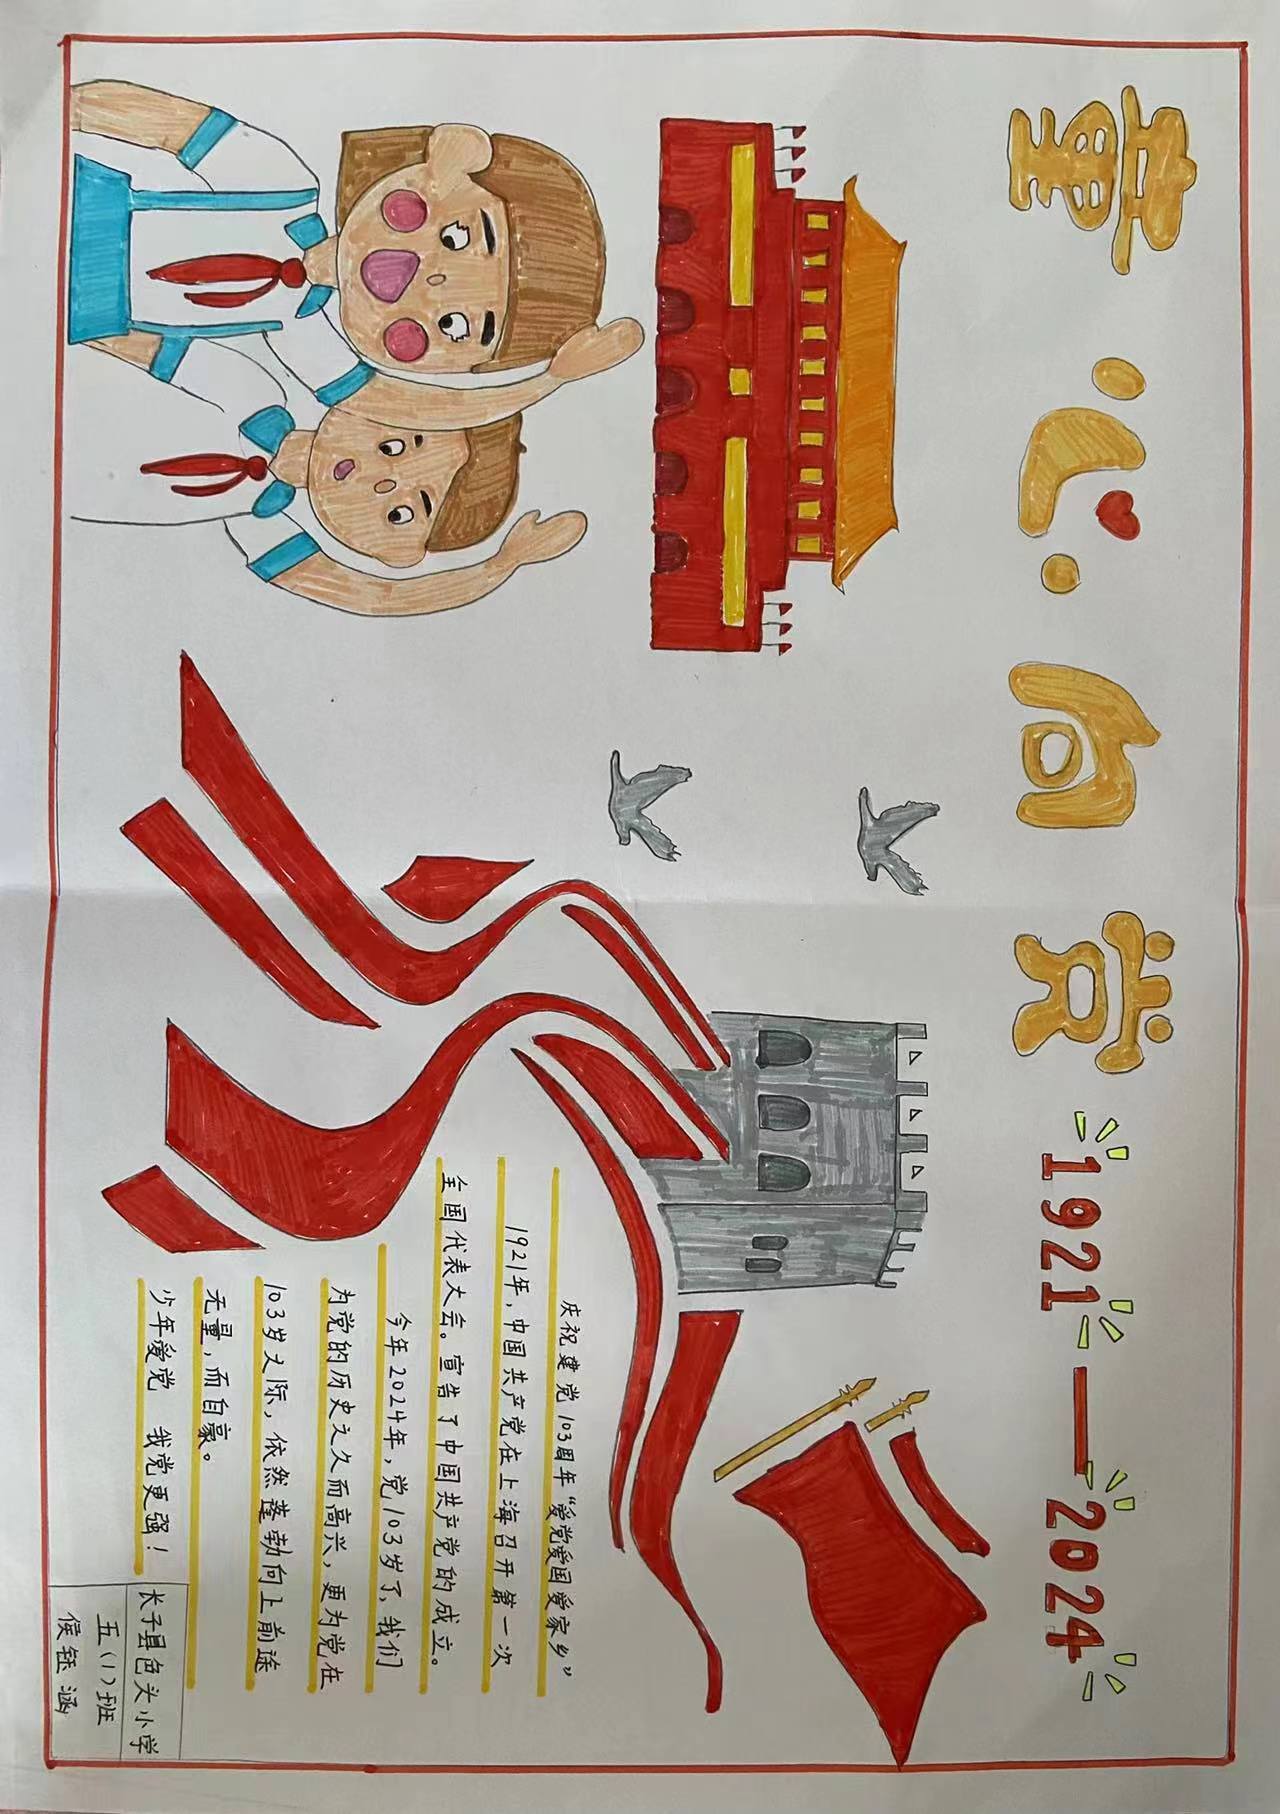 童心向党
1921—2024
庆祝建党103周年“爱党爱国爱家乡”
1921年,中国共产党在上海召开第一次
全国代表大会。宣告了中国共产党的成立。
今年2024年,党103岁了,我们
为党的历史之久而高兴,更为党在
103岁之际,依然蓬勃向上前途
无量,而自豪。
少年爱党 我党更强!
长子县色头小学
五(1)班
侯钰涵